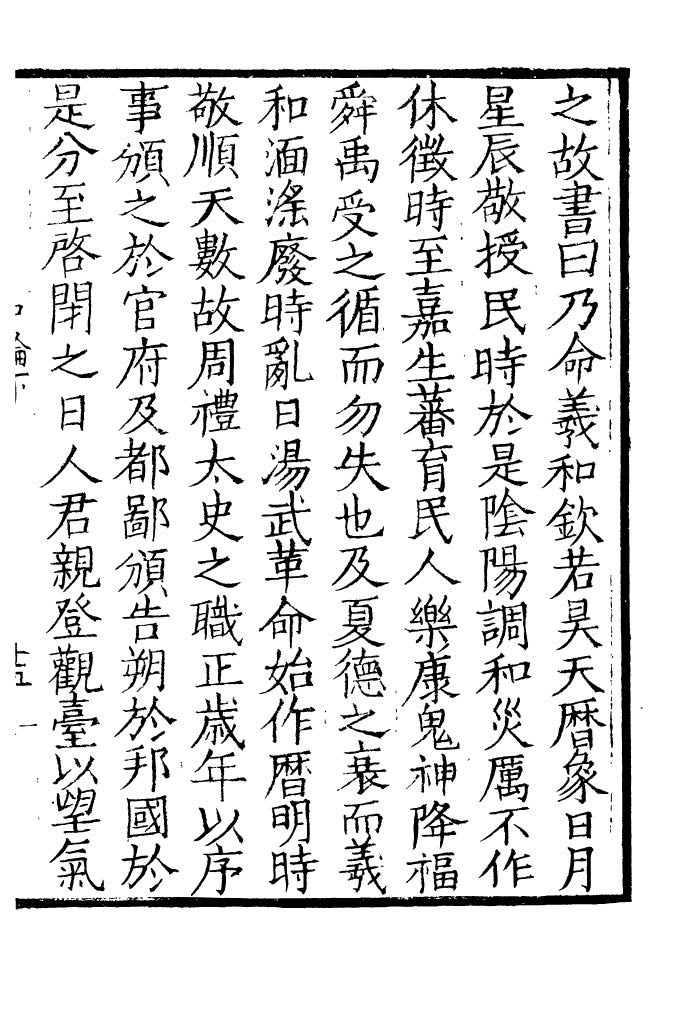 之故書曰乃命羲和欽若昊天曆象日月
星辰敬授民時於是陰陽調和災厲不作
休徵時至嘉生蕃育民人樂康鬼神降福
舜禹受之循而勿失也及夏德之衰而羲
和湎滛廢時亂日湯武革命始作曆明時
敬順天數故周禮太史之職正歲年以序
事頒之於官府及都鄙頒告朔於邦國於
是分至啓閉之日人君親登觀臺以望氣
十五